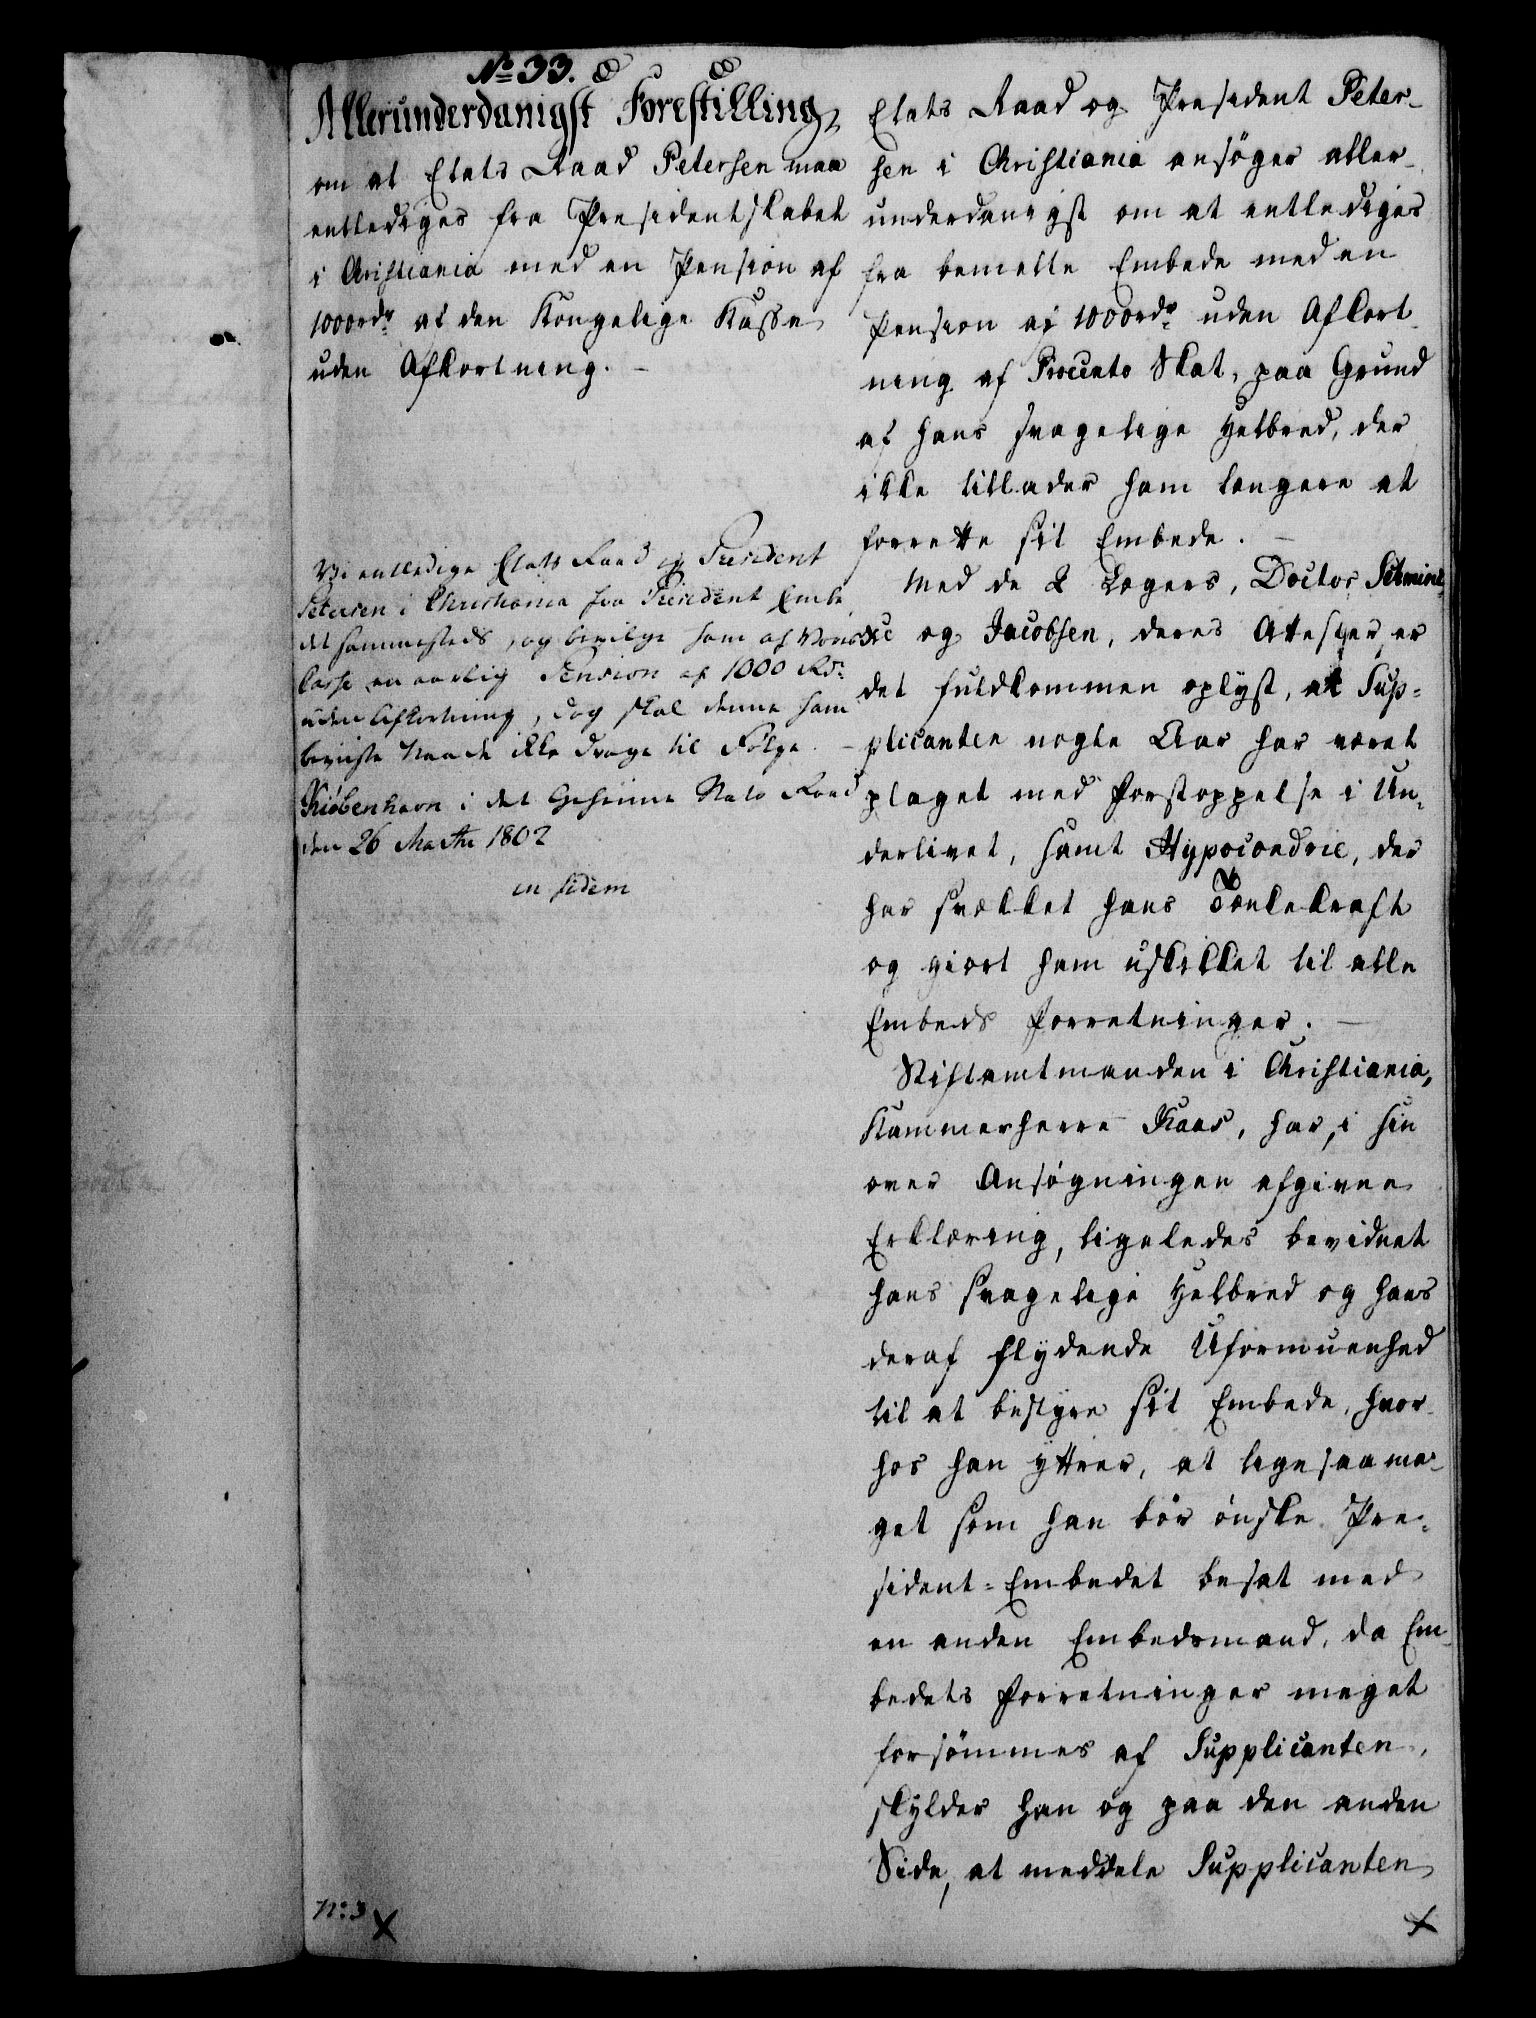 No 33.
Allerunderdanigst Forestilling,
om at Etats Raad Petersen maa
entlediges fra Præsidentskabet
i Christiania med en Pension af
1000rdr af den Kongelige Kasse
uden Afkortning. -
Vi entledige Etats Raad og Præsident
Petersen i Christiania fra Præsident Embe
det sammesteds, og bevilge ham af Vores
Casse en aarlig Pension af 1000 Rdr
uden Afkortning, dog skal denne ham
beviiste Naade ikke drage til Følge. -
Kiøbenhavn i det Geheime Stats Raad
den 26 Martii 1802
in fidem
No: 3
Etats Raad og Præsident Peter-
sen i Christiania ansøger aller-
underdanigst om at entlediges
fra bemelte Embede med en
Pension af 1000rdr uden Afkort-
ning af Procento Skat, paa Grund
af hans svagelige Helbred, der
ikke tillader ham længere at
forrette sit Embede. -
Med de 2 Lægers, Doctor
og Jacobsen, deres Attester er
det fuldkommen oplyst, at Sup-
plicanten nogle Aar har været
plaget med Forstoppelse i Un-
derlivet, samt Hypocondrie, der
har svækket hans Tænkekraft
og giort ham uskikket til alle
Embeds Forretninger. -
Stiftamtmanden i Christiania,
Kammerherre Kaas, har, i sin
over Ansøgningen afgivne
Erklæring, ligeledes bevidnet
hans svagelige Helbred og hans
deraf flydende Uformuenhed
til at bestyre sit Embede, hvor-
hos han yttrer, at ligesaa me-
get som han bør ønske Præ-
sident-Embedet besat med
en anden Embedsmand, da Em-
bedets Forretninger meget
forsømmes af Supplicanten,
skylder han og paa den anden
Side, at meddele Supplicanten